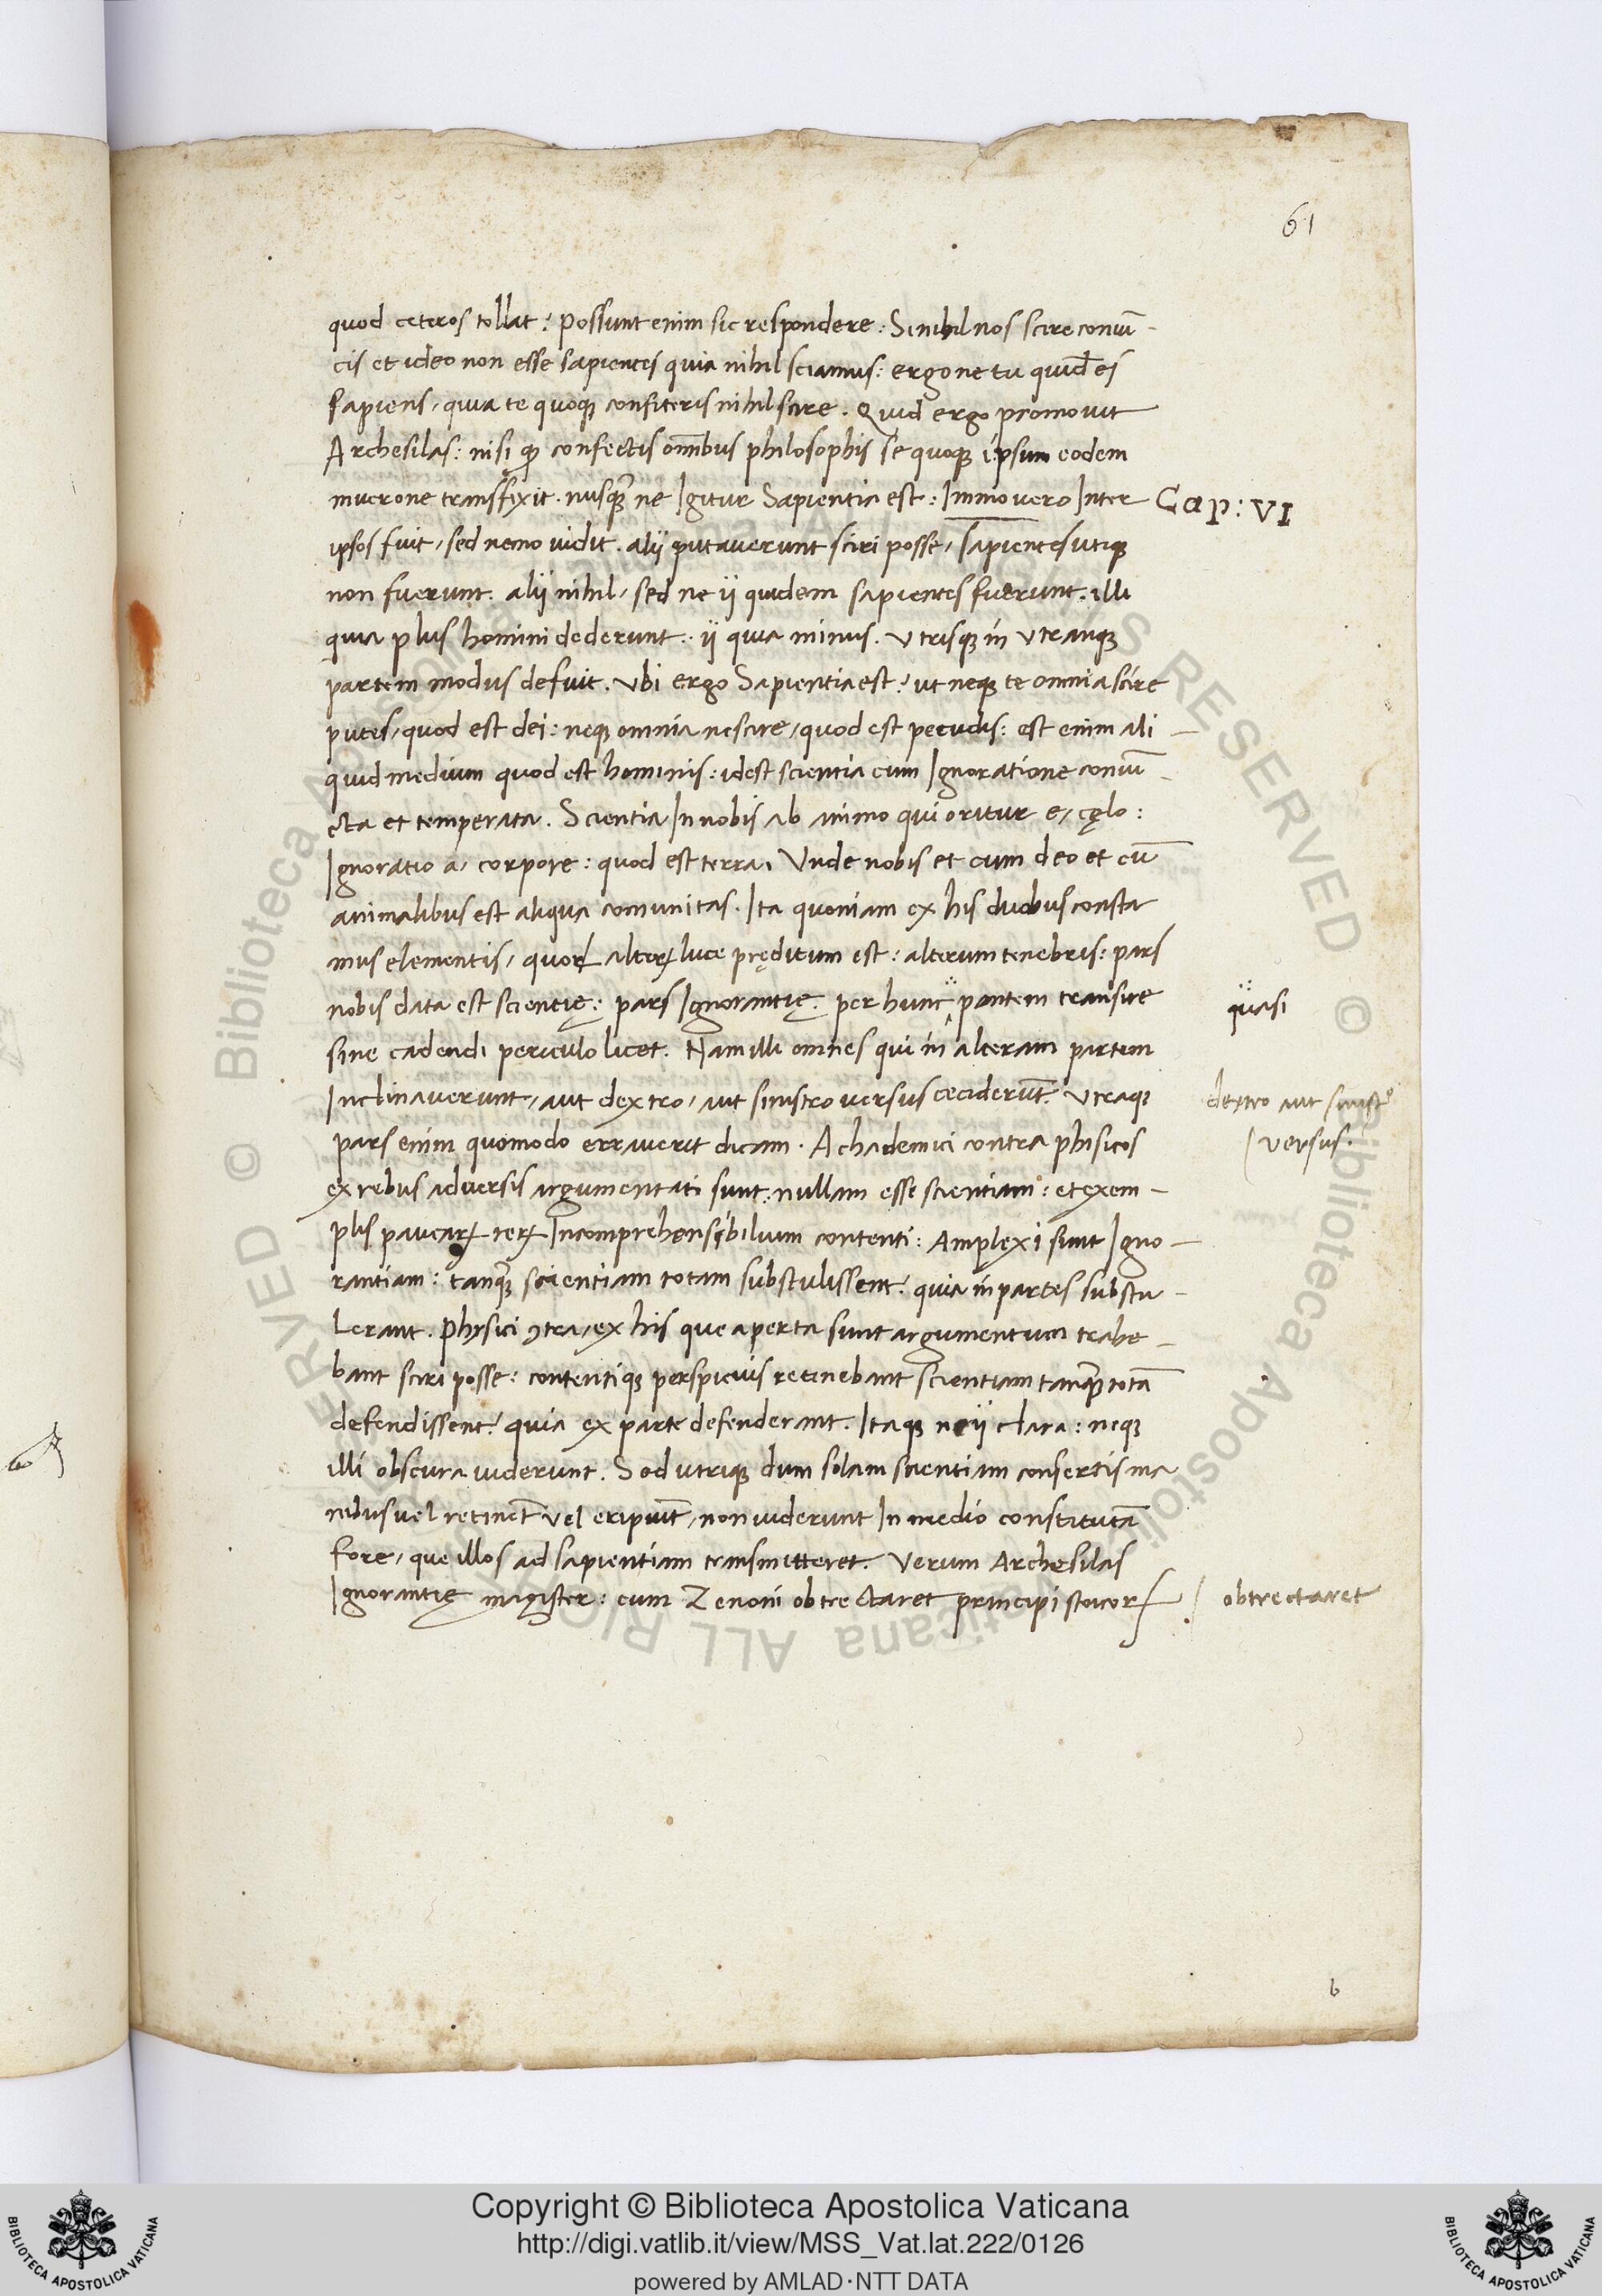 61
quod ceteros tollat? possunt enim sic respondere: Si nihil nos scire conuī-
cis et ideo non esse sapientes quia nihil sciamus: ergo ne tu quid̄ es
sapiens, quia te quoqꝫ confiteris nihil scire. Quid ergo promovit
Archesilas: nisi ꝙ confectis om̄ibus philosophis se quoqꝫ ipsum eodem
mucrone transfixit. nusq̄ ne Igitur Sapientia est: Immo vero Inter
Cap: VI
ipsos fuit, sed nemo vidit. alij putaverunt sciri posse, sapientes utiqꝫ
non fuerunt. alij nihil, sed ne ij quidem sapientes fuerunt. illi
quia plus homini dederunt: ij quia minus. Utrisqꝫ in utranqꝫ
partem modus defuit. Ubi ergo Sapientia est? ut neqꝫ te omnia scire
putes, quod est dei: neqꝫ omnia nescire, quod est pecudis: est enim ali-
quid medium quod est hominis: idest scientia cum Ignoratione coniū-
cta et temperata. Scientia In nobis ab animo qui oritur e, cęlo:
Ignoratio a, corpore: quod est terra. Unde nobis et cum deo et cū
animalibus est aliqua comunitas. Ita quoniam ex his duobus consta
mus elementis, quoꝝ alterꝝ luce pręditum est: alterum tenebris: pars
nobis data est scientię: pars Ignorantię. per hunc pontem transire
quasi
sine cadendi periculo licet. Nam illi omnes qui in alteram partem
Inclinaverunt, aut dextro, aut sinistro versus ceciderūt. Utraqꝫ
dextro aut sinistro
versus.
pars enim quomodo erraverit dicam. Achademici contra phisicos
ex rebus adversis argumentati sunt: nullam esse scientiam: et exem-
plis paucaꝝ reꝝ Incomprehensibilium contenti: Amplexi sunt Igno-
rantiam: tanq̄ scientiam totam substulissent? quia in partes substu-
lerant. Physici ꝯtra, ex his que aperta sunt argumentum trahe-
bant sciri posse: contentiqꝫ perspicuis retinebant scientiam tanq̄ totā
defendissent? quia ex parte defenderant. Itaqꝫ ne ij clara: neqꝫ
illi obscura viderunt. Sed utriqꝫ dum solam scientiam consertis ma
nibus vel retinēt vel eripiūt, non viderunt In medio constitutā
fore, que illos ad sapientiam transmitteret. Verum Archesilas
Ignorantię magister: cum Zenoni obtrectaret principi stoicoꝝ
obtrectaret
b
Copyright © Biblioteca Apostolica Vaticana
http://digi.vatlib.it/view/MSS_Vat.lat.222/0126
powered by AMLAD·NTT DATA
BIBLIOTECA APOSTOLICA VATICANA
BIBLIOTECA APOSTOLICA VATICANA